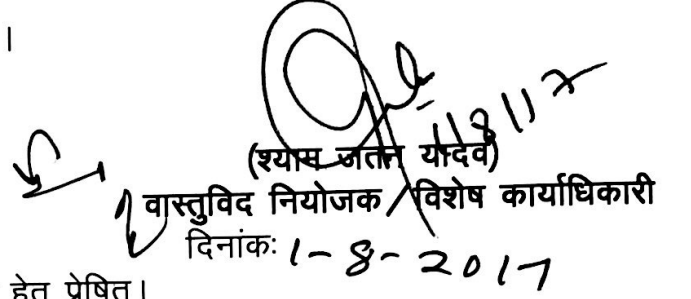 ।
1/8/17
(श्याम जतन यादव)
वास्तुविद नियोजक / विशेष कार्याधिकारी
दिनांकः 1-8-2017
हेतु प्रेषित।